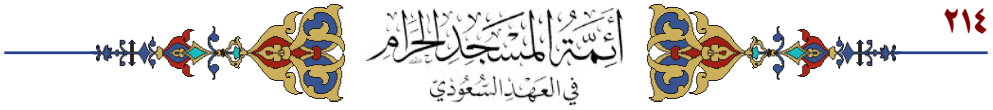 ٢١٤
أَئِمَّةُ الْمَسْجِدِ الْحَرَامِ
فِي الْعَهْدِ السُّعُودِيِّ